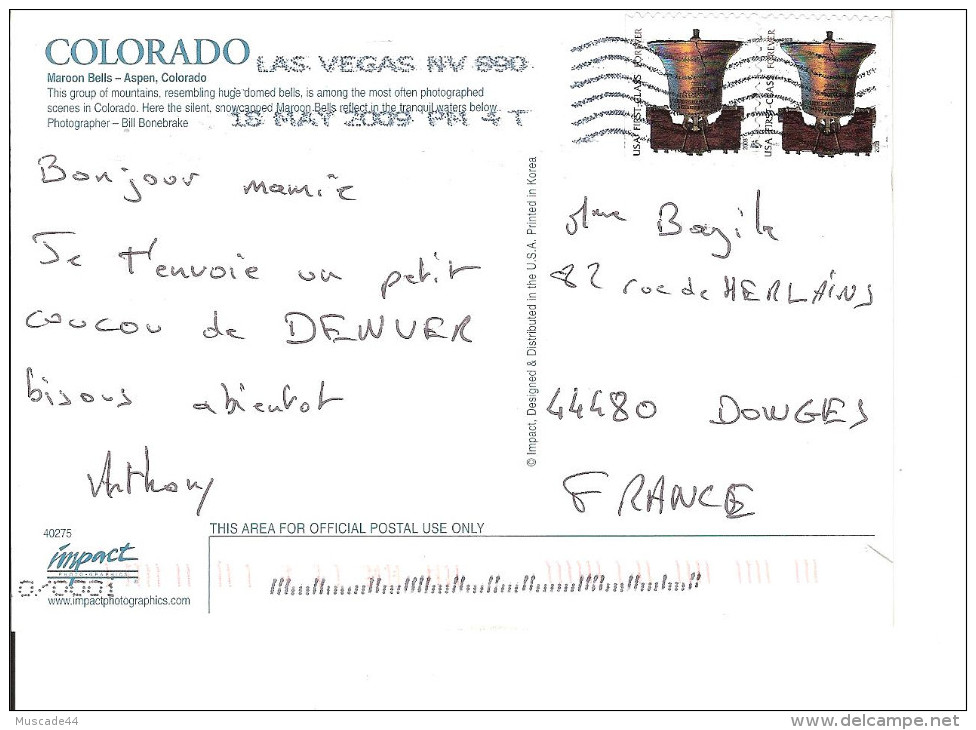 COLORADO
Maroon Bells – Aspen, Colorado
This group of mountains, resembling huge domed bells, is among the most often photographed
scenes in Colorado. Here the silent, snowcapped Maroon Bells reflect in the tranquil waters below.
Photographer – Bill Bonebrake
LAS VEGAS NV 890
18 MAY 2009 PM 4 T
USA FIRST-CLASS FOREVER
USA FIRST-CLASS FOREVER
Bonjour mamie
Je t'envoie un petit
coucou de DENVER
bisous abientot
Anthony
© Impact, Designed & Distributed in the U.S.A. Printed in Korea
Mme
82 rue de HERLAINS
44480 DONGES
FRANCE
THIS AREA FOR OFFICIAL POSTAL USE ONLY
40275
impact
PHOTO-GRAPHICS
www.impactphotographics.com
Muscade44
www.delcampe.net